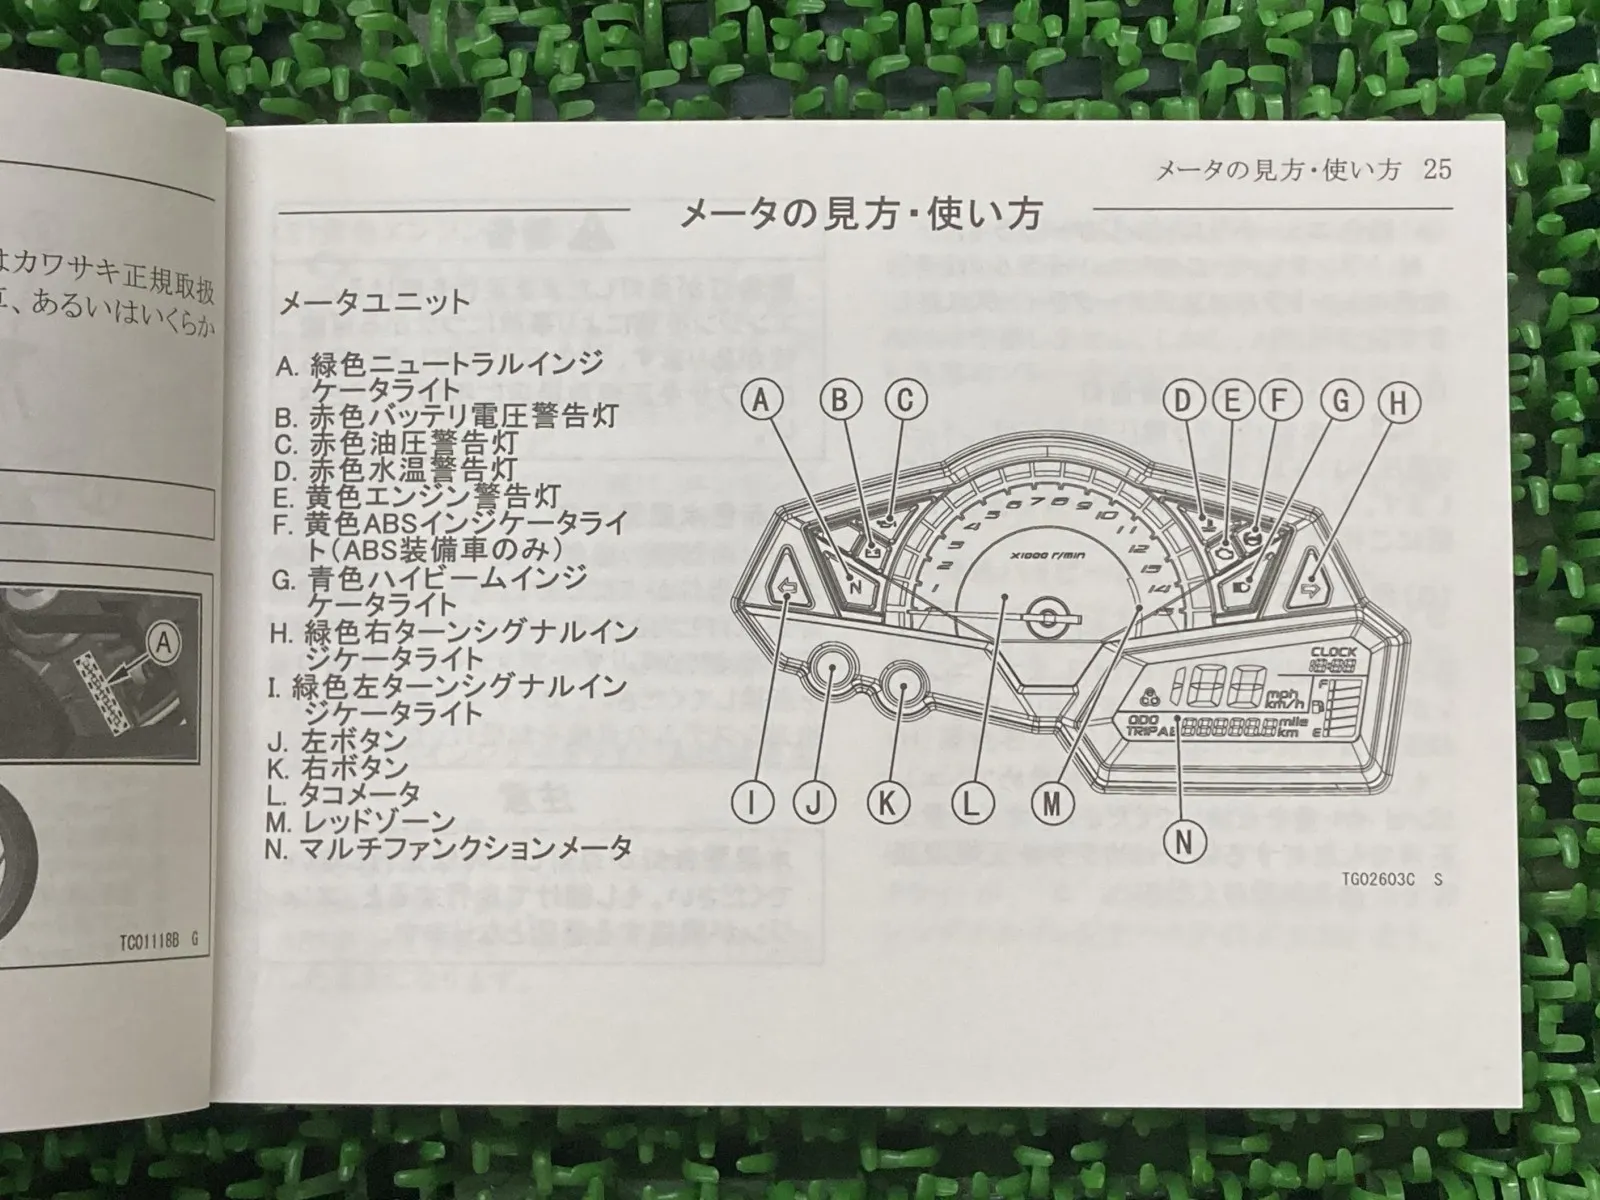 はカワサキ正規取扱
、あるいはいくらか
A
TC01118B G
メータの見方・使い方 25
メータの見方・使い方
メータユニット
A. 緑色ニュートラルインジ
ケータライト
B. 赤色バッテリ電圧警告灯
C. 赤色油圧警告灯
D. 赤色水温警告灯
E. 黄色エンジン警告灯
F. 黄色ABSインジケータライ
ト(ABS装備車のみ)
G. 青色ハイビームインジ
ケータライト
H. 緑色右ターンシグナルイン
ジケータライト
I. 緑色左ターンシグナルイン
ジケータライト
J. 左ボタン
K. 右ボタン
L. タコメータ
M. レッドゾーン
N. マルチファンクションメータ
A B C D E F G H
1 2 3 4 5 6 7 8 9 10 11 12 13 14 15
X1000 r/min
N
CLOCK
188 mph
km/h
F
E
ODO
TRIP AB mile
km
I J K L M
N
TG02603C S